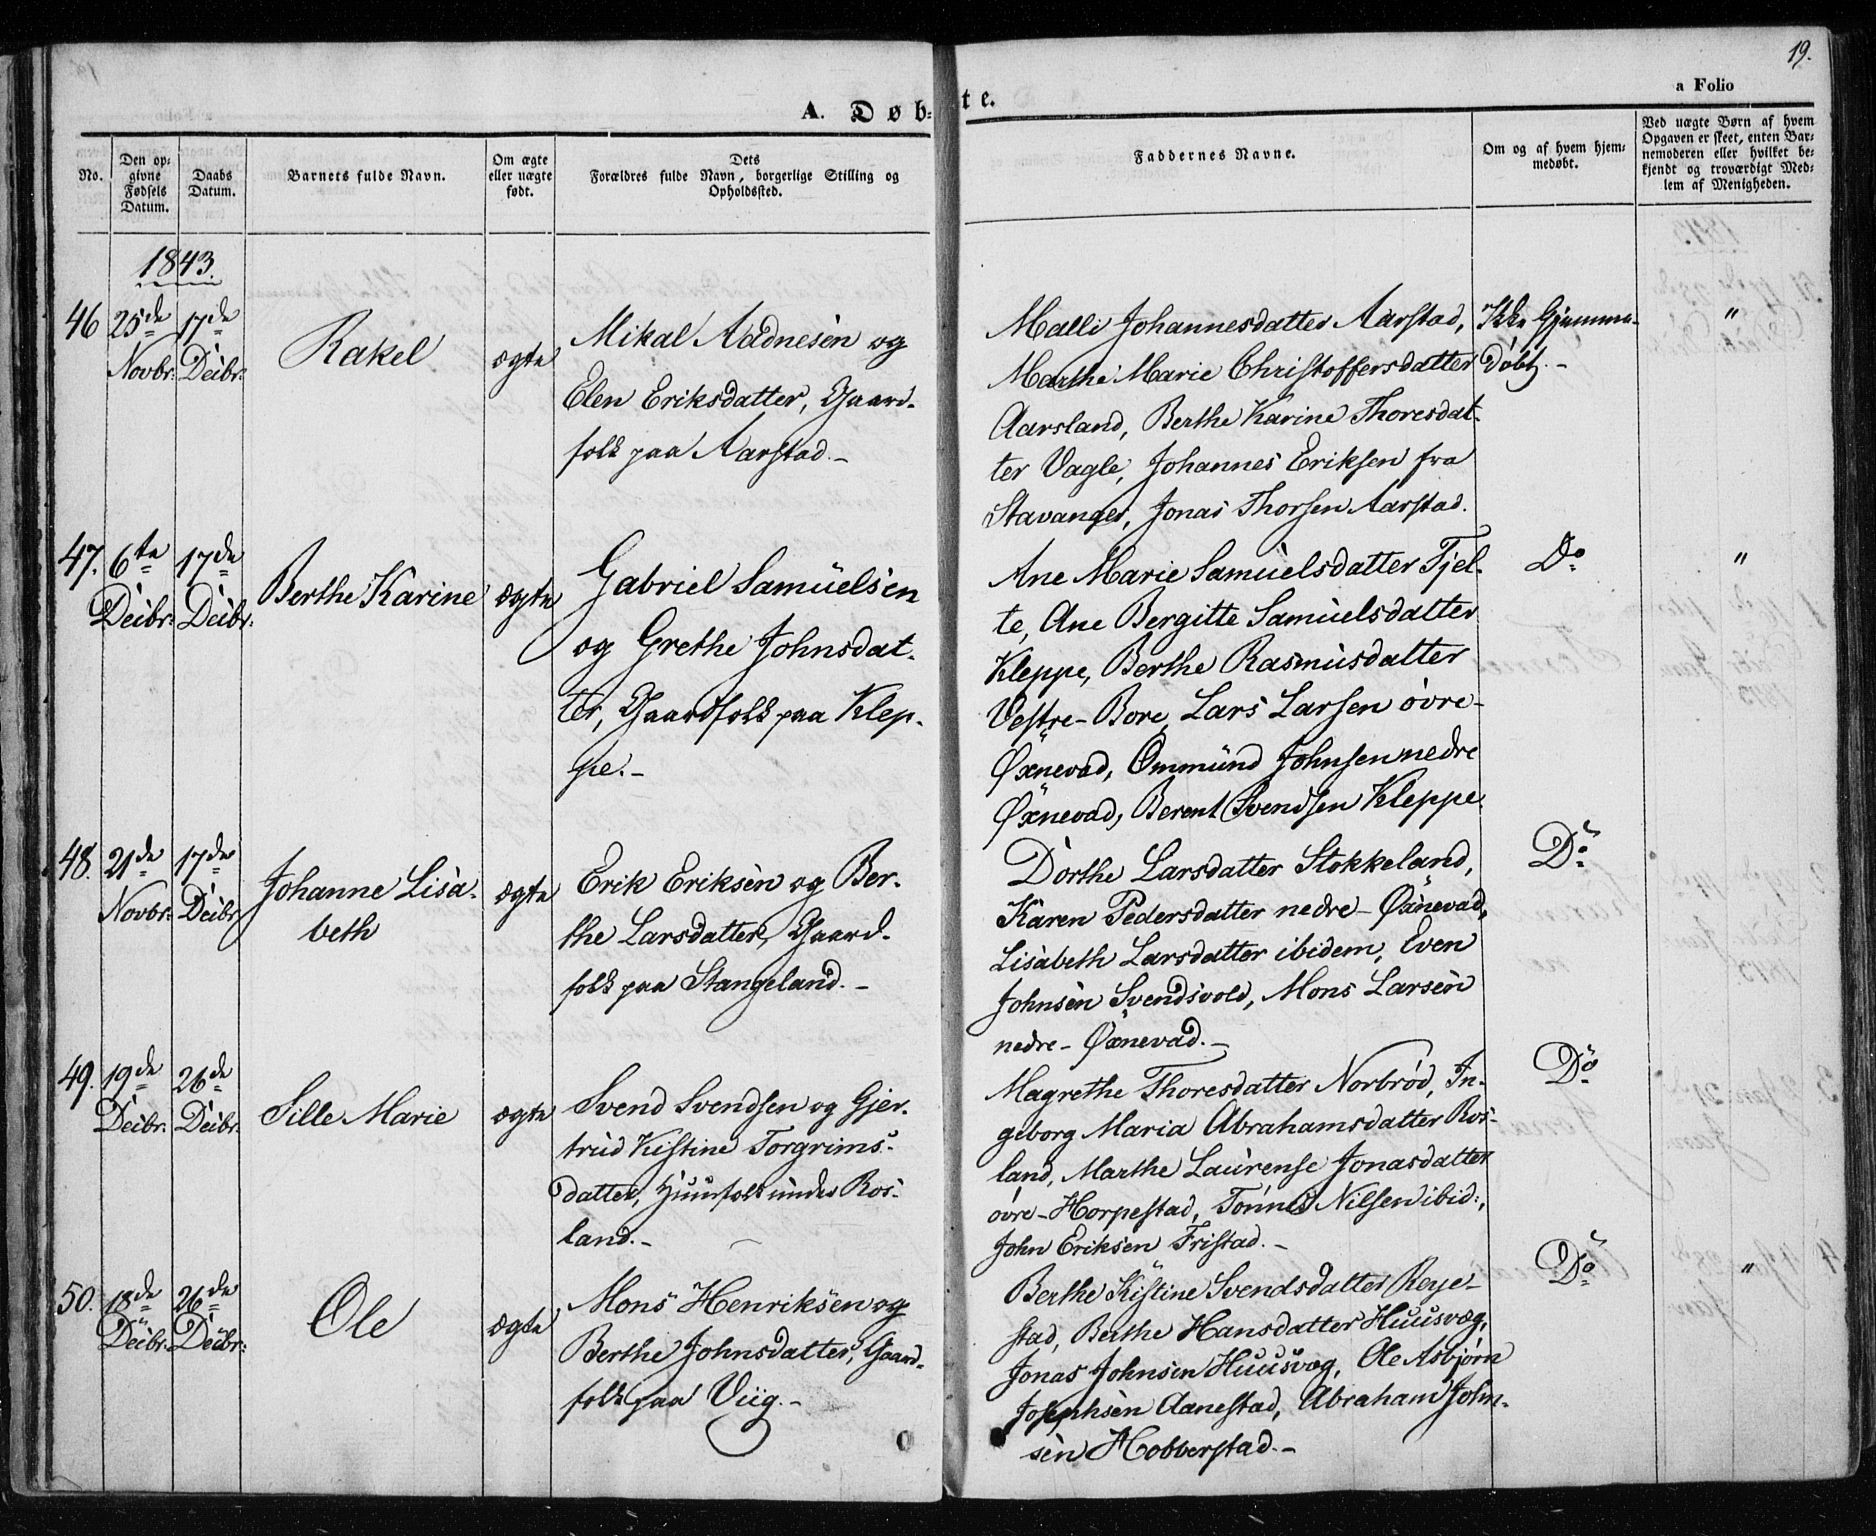 19.
a Folio
A. Døb=
te.
No.
Den op=
givne
Fødsels
Datum.
Daabs
Datum.
Barnets fulde Navn.
Om ægte
eller uægte
født.
Dets
Forældres fulde Navn, borgerlige Stilling og
Opholdssted.
Faddernes Navne.
Om og af hvem hjem=
medøbt.
Ved uægte Børn af hvem
Opgaven er skeet, enten Bar=
nemoderen eller hvilket be=
kjendt og troværdigt Med=
lem af Menigheden.
1843.
46
25de
Novbr:
17de
Deibr:
Rakel
ægte
Mikal Aadnesen og
Elen Eriksdatter, Gaard-
folk paa Aarstad.-
Malli Johannesdatter Aarstad,
Marthe Marie Christoffersdatter
Aarsland, Berthe Karine Thoresdat-
ter Vagle, Johannes Eriksen fra
Stavanger, Jonas Thorsen Aarstad.
Ikke Hjemme-
døbt.-
"
47.
6te
Deibr:
17de
Deibr:
Berthe Karine
ægte
Gabriel Samuelsen
og Grethe Johnsdat-
ter, Gaardfolk paa Klep-
pe.-
Ane Marie Samuelsdatter Tjel-
te, Ane Bergitte Samuelsdatter
Kleppe, Berthe Rasmusdatter
Vestre-Bore, Lars Larsen øvre-
Øxnevad, Ommund Johnsen nedre
Øxnevad, Berent Svendsen Kleppe
Do
"
48.
21de
Novbr:
17de
Deibr
Johanne Lisa-
beth
ægte
Erik Eriksen og Ber-
the Larsdatter, Gaard-
folk paa Stangeland.-
Dorthe Larsdatter Stokkeland,
Karen Pedersdatter nedre-Øxnevad,
Lisabeth Larsdatter ibidem, Even
Johnsen Svendsvold, Mons Larsen
nedre-Øxnevad.-
Do
49.
19de
Deibr:
26de
Deibr:
Sille Marie
ægte
Svend Svendsen og Gjer-
trud Kistine Torgrims-
datter, Huusfolk under Ros-
land.-
Magrethe Thoresdatter Norbrød, In-
geborg Maria Abrahamsdatter Ros-
land, Marthe Laurense Jonasdatter
øvre-Horpestad, Tønnes Nilsen ibid:,
John Eriksen Fristad.-
Do
50.
18de
Deibr:
26de
Deibr:
Ole
ægte
Mons Henriksen og
Berthe Johnsdatter, Gaard-
folk paa Viig.-
Berthe Kistine Svendsdatter Reye-
stad, Berthe Hansdatter Huusvæg,
Jonas Johnsen Huusvæg, Ole Asbjørn
Josephsen Aanestad, Abraham John-
sen Hobberstad.-
Do
"